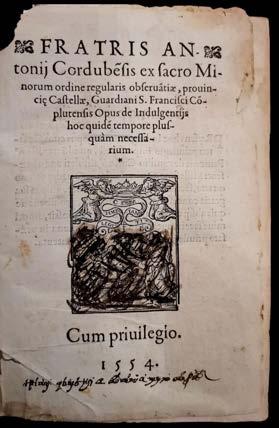 FRATRIS AN-
tonij Cordubēsis ex sacro Mi-
norum ordine regularis obseruātiæ, prouin-
cię Castellæ, Guardiani S. Francisci Cō-
plutensis Opus de Indulgentijs
hoc quidē tempore plus-
quàm necessa-
rium.
*
Cum priuilegio.
1554.